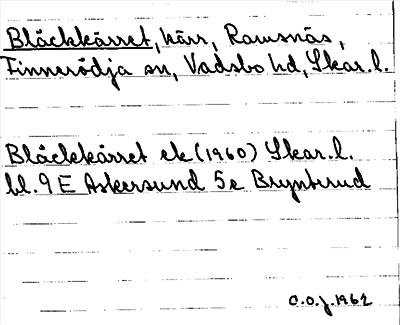 Bläckkärret, kärr, Ramsnäs,
Finnerödja sn, Vadsbo hd, Skar. l.
Bläckkärret ek (1960) Skar. l.
bl. 9 E Askersund 5e Brynterud
O.O.J. 1962